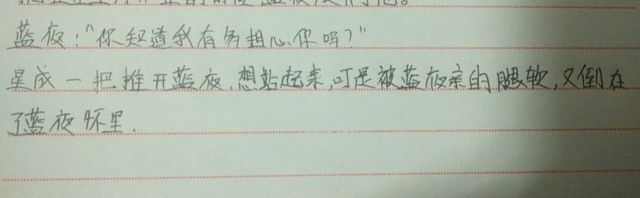 蓝夜:"你知道我有多担心你吗?"
星成一把推开蓝夜,想站起来,可是被蓝夜亲的腿软,又倒在
了蓝夜怀里.